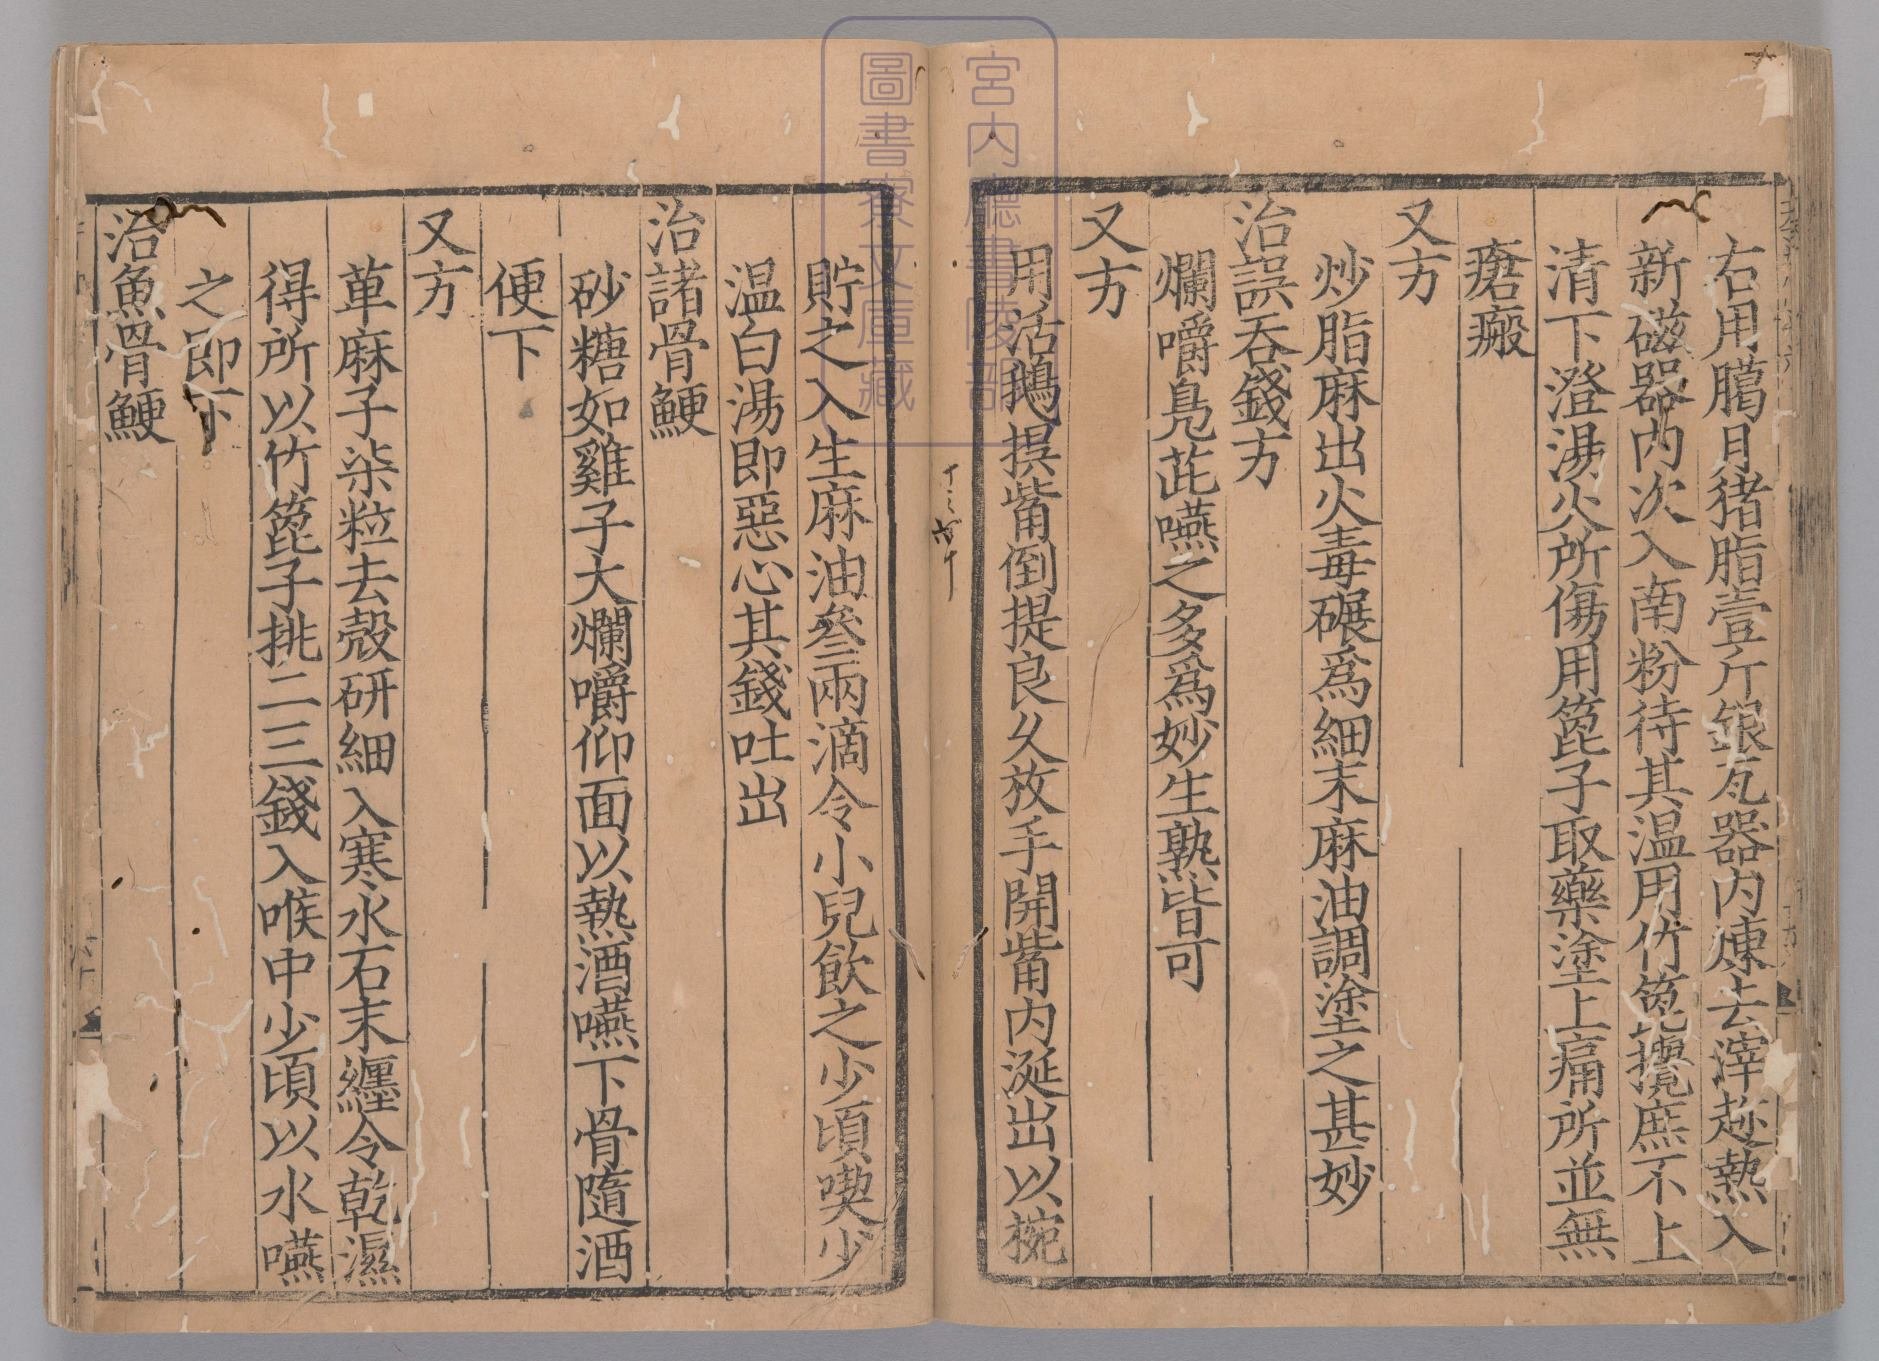 右用臈月猪脂壹斤銀瓦器内煉去滓趂熱入
新磁器内次入南粉待其温用竹篦攪庶不上
清下澄湯火所傷用篦子取藥塗上痛所並無
瘡瘢
又方
炒脂麻出火毒碾爲細末麻油調塗之甚妙
治誤吞錢方
爛嚼鳧茈嚥之多爲妙生熟皆可
又方
用活鵝損觜倒提良久放手開觜内涎出以椀
貯之入生麻油叁兩滴令小兒飲之少頃喫少
温白湯即惡心其錢吐出
治諸骨鯁
砂糖如雞子大爛嚼仰面以熱酒嚥下骨隨酒
便下
又方
萆麻子柒粒去殼研細入寒水石末纏令乾濕
得所以竹篦子挑二三錢入喉中少頃以水嚥
之即下
治魚骨鯁
宮内廳書陵部
圖書寮文庫藏